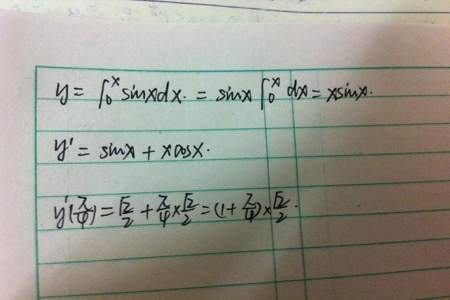 y = ∫₀ˣ sinxdx. = sinx ∫₀ˣ dx = xsinx.
y' = sinx + xcosx.
y'(π/4) = √2/2 + π/4 × √2/2 = (1 + π/4) × √2/2.